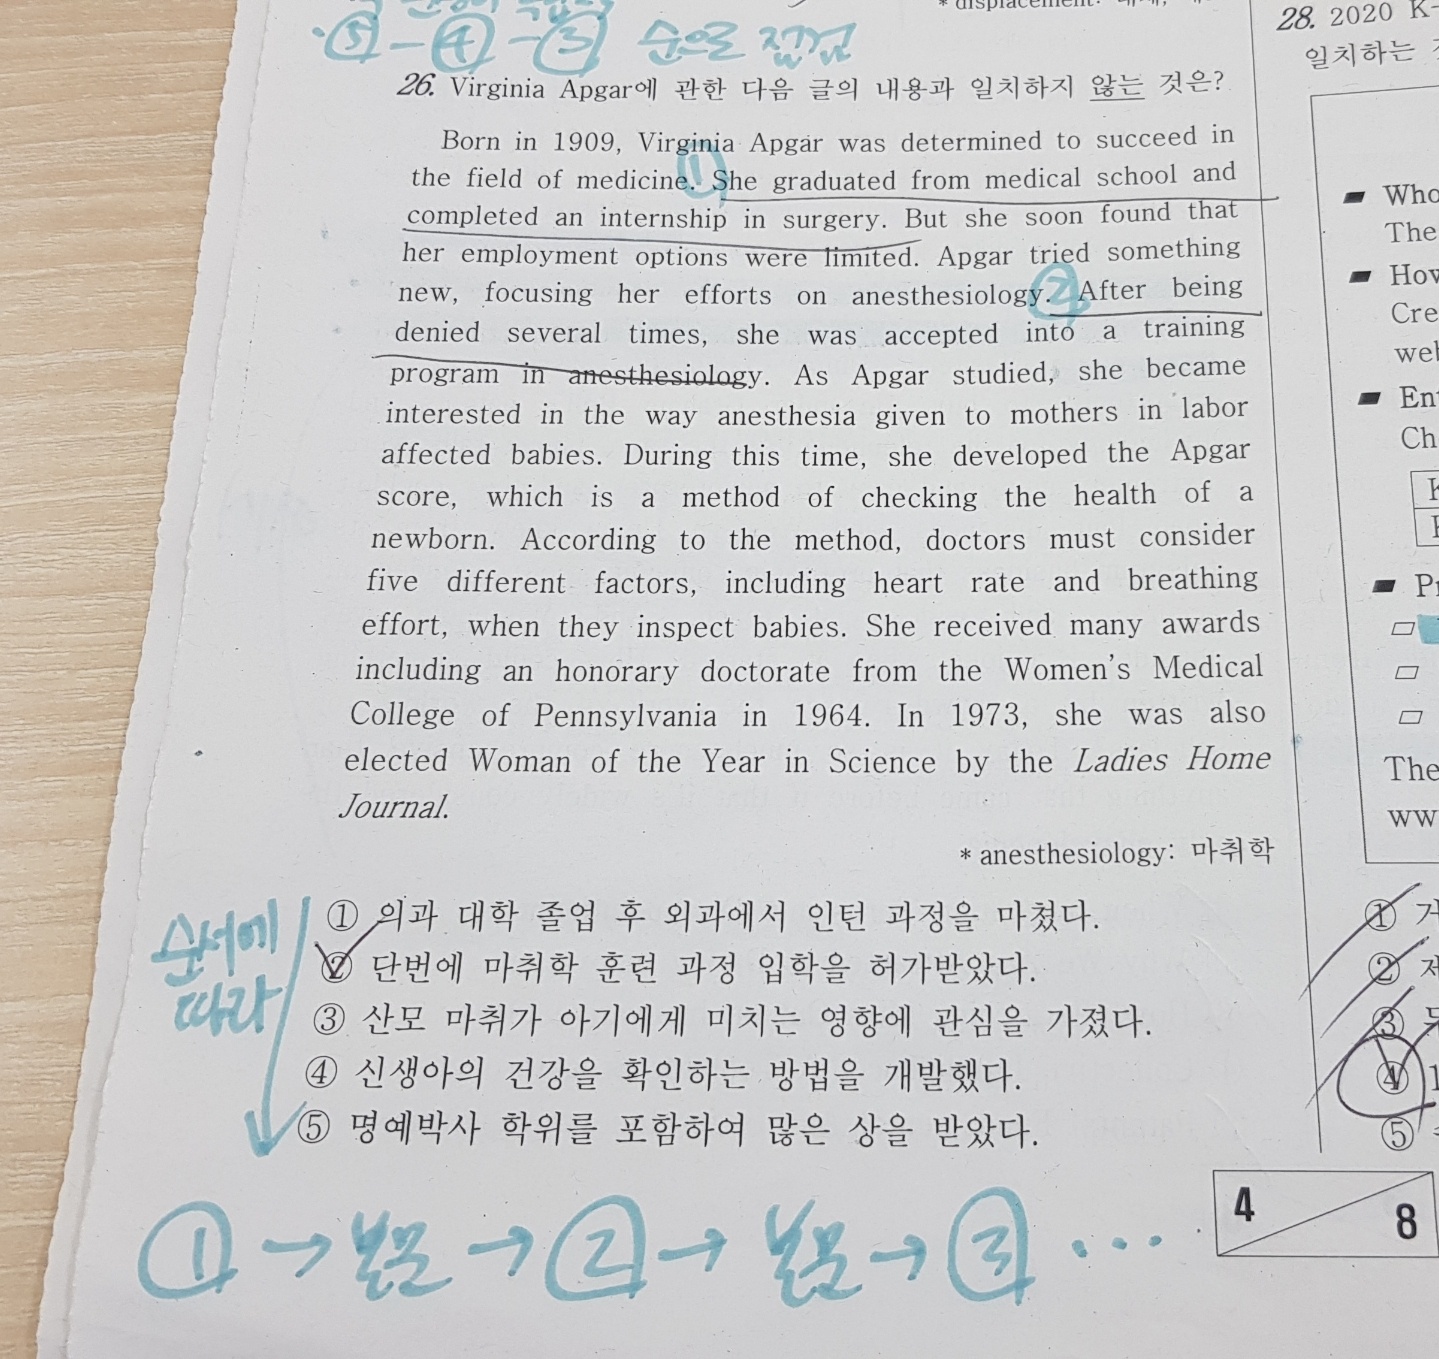 * displacement:
⑤-④-③ 순으로 점검
26. Virginia Apgar에 관한 다음 글의 내용과 일치하지 않는 것은?
Born in 1909, Virginia Apgar was determined to succeed in
the field of medicine. ① She graduated from medical school and
completed an internship in surgery. But she soon found that
her employment options were limited. Apgar tried something
new, focusing her efforts on anesthesiology. ② After being
denied several times, she was accepted into a training
program in anesthesiology. As Apgar studied, she became
interested in the way anesthesia given to mothers in labor
affected babies. During this time, she developed the Apgar
score, which is a method of checking the health of a
newborn. According to the method, doctors must consider
five different factors, including heart rate and breathing
effort, when they inspect babies. She received many awards
including an honorary doctorate from the Women's Medical
College of Pennsylvania in 1964. In 1973, she was also
elected Woman of the Year in Science by the Ladies Home
Journal.
* anesthesiology: 마취학
순서에
따라
① 의과 대학 졸업 후 외과에서 인턴 과정을 마쳤다.
② 단번에 마취학 훈련 과정 입학을 허가받았다.
③ 산모 마취가 아기에게 미치는 영향에 관심을 가졌다.
④ 신생아의 건강을 확인하는 방법을 개발했다.
⑤ 명예박사 학위를 포함하여 많은 상을 받았다.
① → 본문 → ② → 본문 → ③ ...
4
8
28. 2020
일치하는
Who
The
How
The
①
②
③
④
⑤